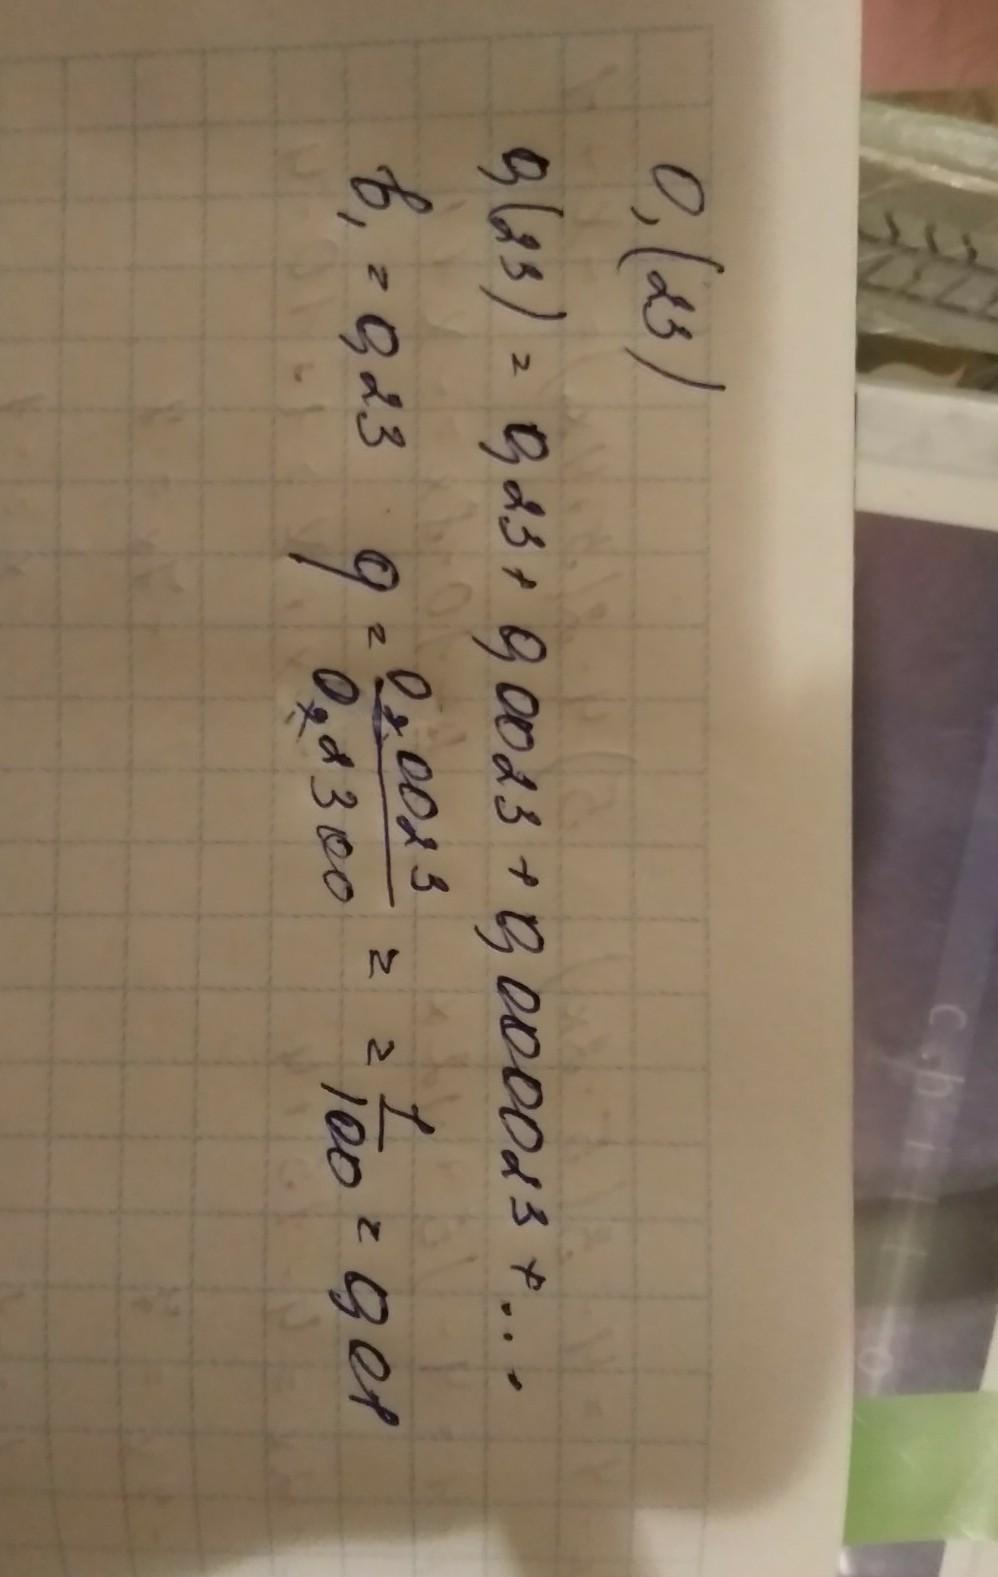 0,(23)
0,(23) = 0,23 + 0,0023 + 0,000023 + ...
b₁ = 0,23 q = 0,0023/0,2300 = = 1/100 = 0,01